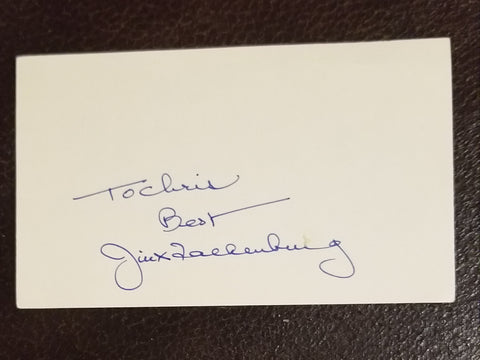 To Chris
Best
Jinx Falkenburg